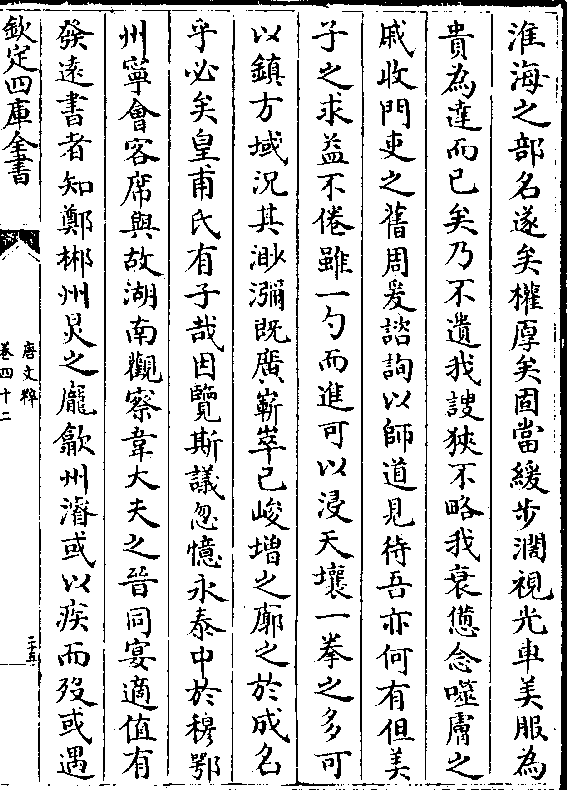 淮海之部名遂矣權厚矣固當緩步濶視光車美服為
貴為達而已矣乃不遺我謏狹不略我衰憊念噬膚之
戚收門吏之舊周爰諮詢以師道見待吾亦何有但美
子之求益不倦雖一勺而進可以浸天壤一拳之多可
以鎮方域況其渺瀰既廣嶄崒已峻増之廓之於成名
乎必矣皇甫氏有子哉因覽斯議忽憶永泰中於穆鄂
州寧會客席與故湖南觀察韋大夫之晉同宴適值有
發遠書者知鄭郴州炅之龐歙州濬或以疾而殁或遇
欽定四庫全書
唐文粹
卷四十二
二十五